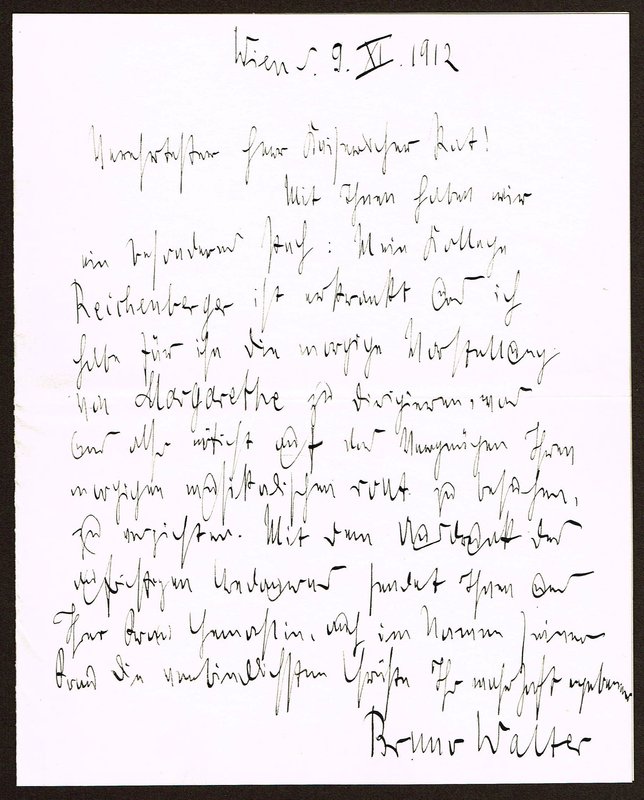 Wien d. 9. XI. 1912
Verehrtester Herr Kaiserlicher Rat!
Mit Ihnen haben wir
ein besonderes Pech: Mein Kollege
Reichenberger ist erkrankt und ich
habe für ihn die morgige Vorstellung
von Margarethe zu dirigieren, und
und also nötigt auf das Vergnügen Ihren
morgigen musikalischen rout zu besuchen,
zu verzichten. Mit dem Ausdruck des
aufrichtigen Bedauerns sendet Ihnen und
Ihrer Frau Gemahlin, auch im Namen seiner
Frau die verbindlichsten Grüße Ihr wahrhaft ergebener
Bruno Walter